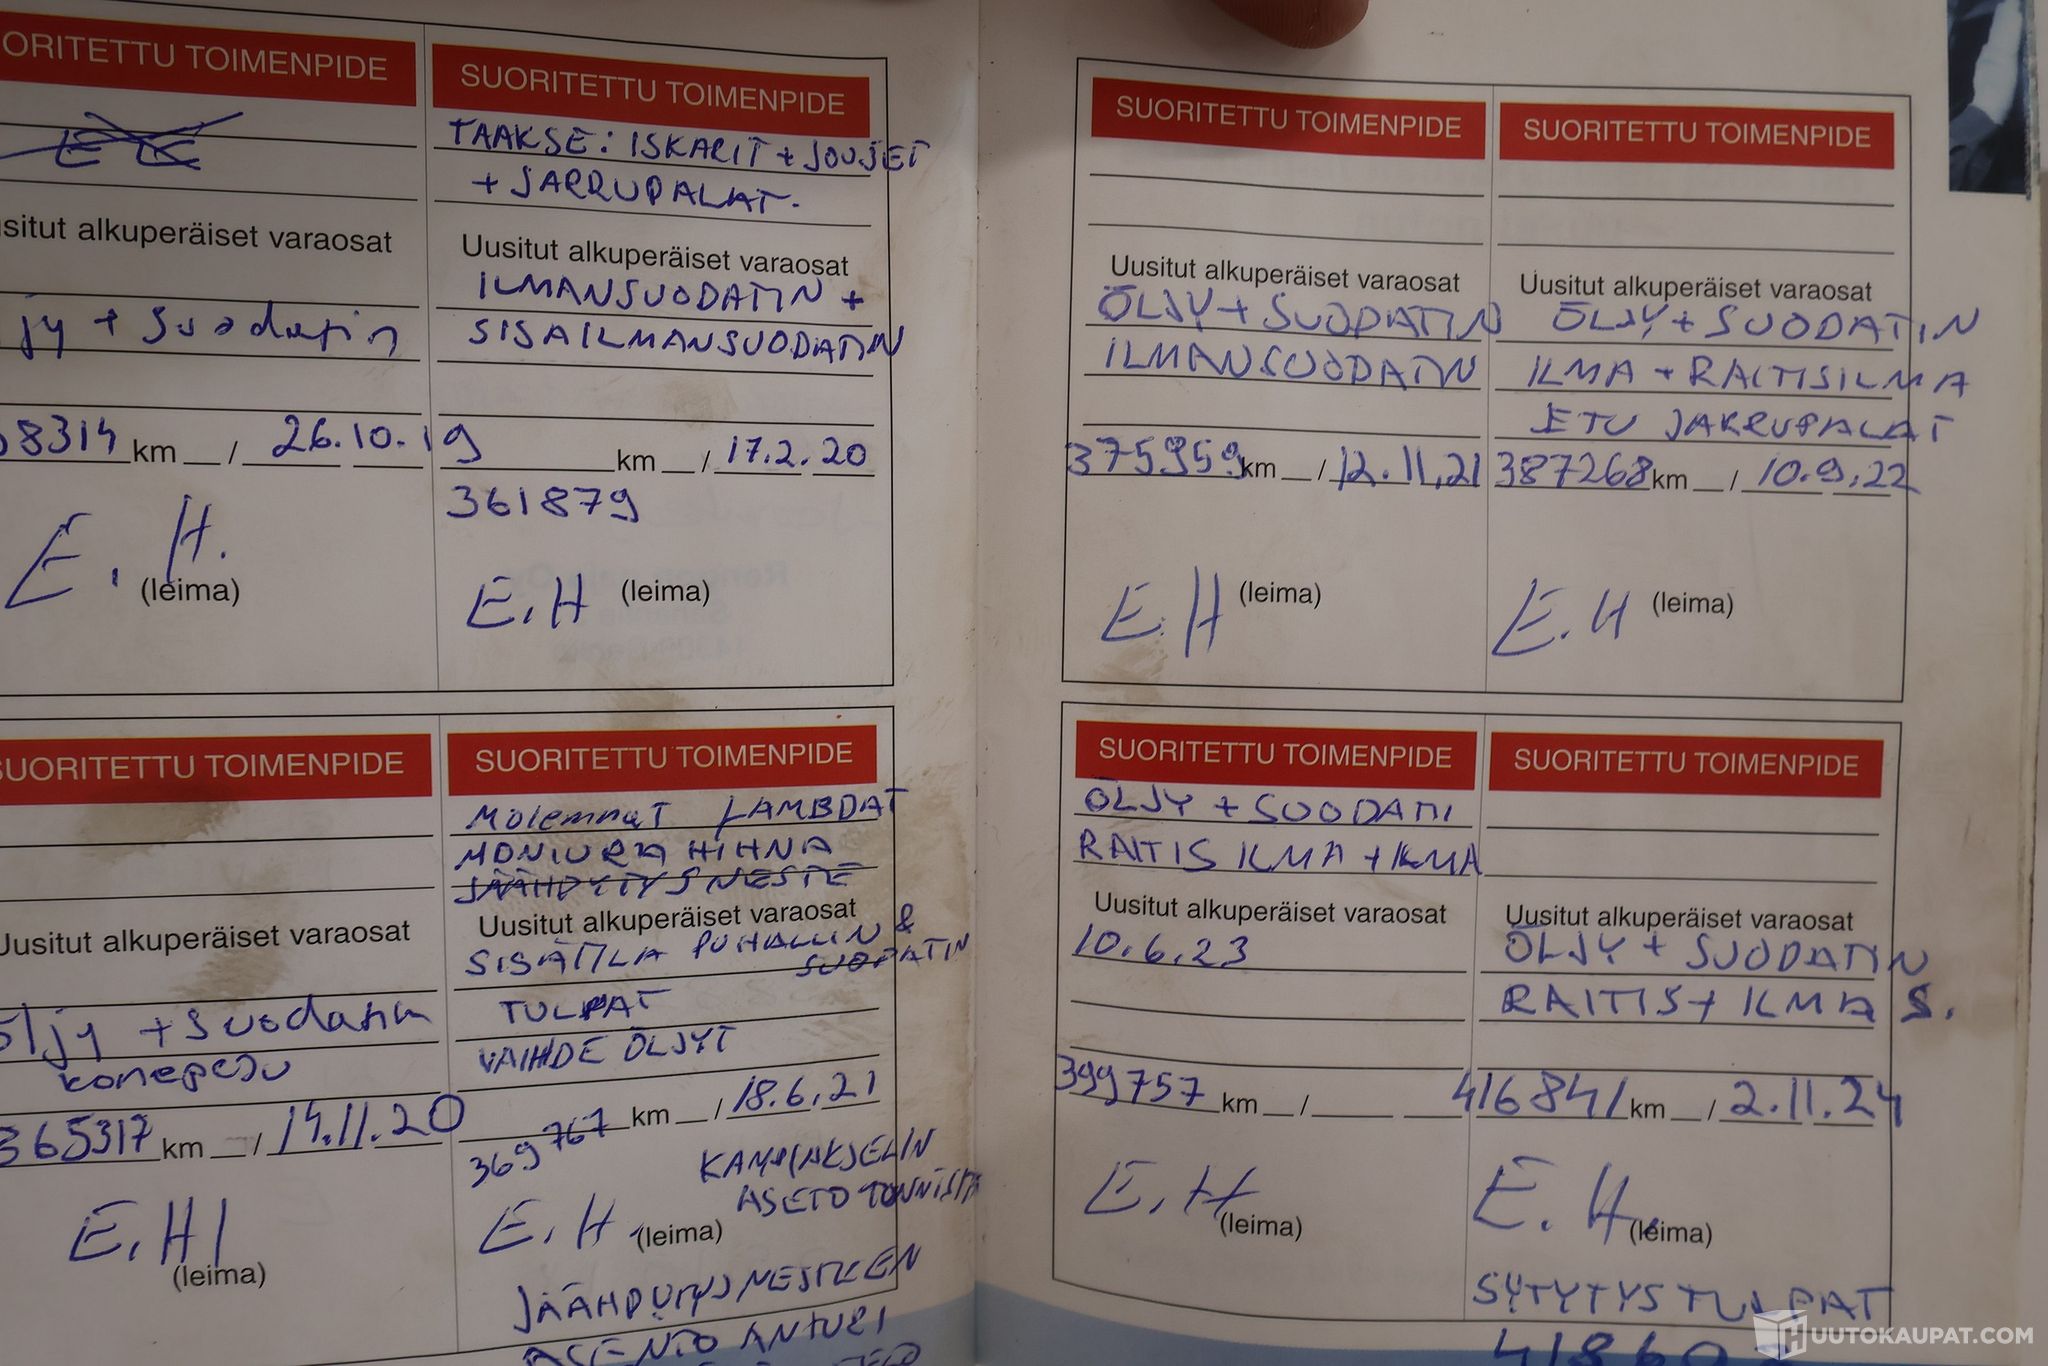 ORITETTU TOIMENPIDE
situt alkuperäiset varaosat
jy + Suodatin
8314 km / 26.10.19
E. H.
(leima)
SUORITETTU TOIMENPIDE
TAAKSE: ISKARIT + JOUSET
+ JARRUPALAT.
Uusitut alkuperäiset varaosat
ILMANSUODATIN +
SISAILMANSUODATIN
km / 17.2.20
361879
E.H (leima)
SUORITETTU TOIMENPIDE
Uusitut alkuperäiset varaosat
ÖLJY + SUODATIN
ILMANSUODATIN
375959 km / 12.11.21
E.H (leima)
SUORITETTU TOIMENPIDE
Uusitut alkuperäiset varaosat
ÖLJY + SUODATIN
ILMA + RAITISILMA
ETU JARRUPALAT
387268 km / 10.9.22
E.H (leima)
SUORITETTU TOIMENPIDE
Uusitut alkuperäiset varaosat
öljy + suodatin
konepesu
365317 km / 14.11.20
E.H
(leima)
SUORITETTU TOIMENPIDE
Molemmat LAMBDAT
MONIURA HIHNA
JÄÄHDYTYSNESTE
Uusitut alkuperäiset varaosat
SISÄTILA PUHALLIN &
SUODATIN
TULPAT
VAIHDE ÖLJYT
km / 18.6.21
369767
KAMPIAKSELIN
E.H (leima)
JÄÄHDYTYSNESTEEN
ASENTO ANTURI
SUORITETTU TOIMENPIDE
ÖLJY + SUODATI
RAITIS ILMA + ILMA
Uusitut alkuperäiset varaosat
10.6.23
399757 km /
E.H
(leima)
SUORITETTU TOIMENPIDE
Uusitut alkuperäiset varaosat
ÖLJY + SUODATIN
RAITIS + ILMA S.
416841 km / 2.11.24
E.H.
(leima)
SYTYTYSTULPAT
HUUTOKAUPAT.COM